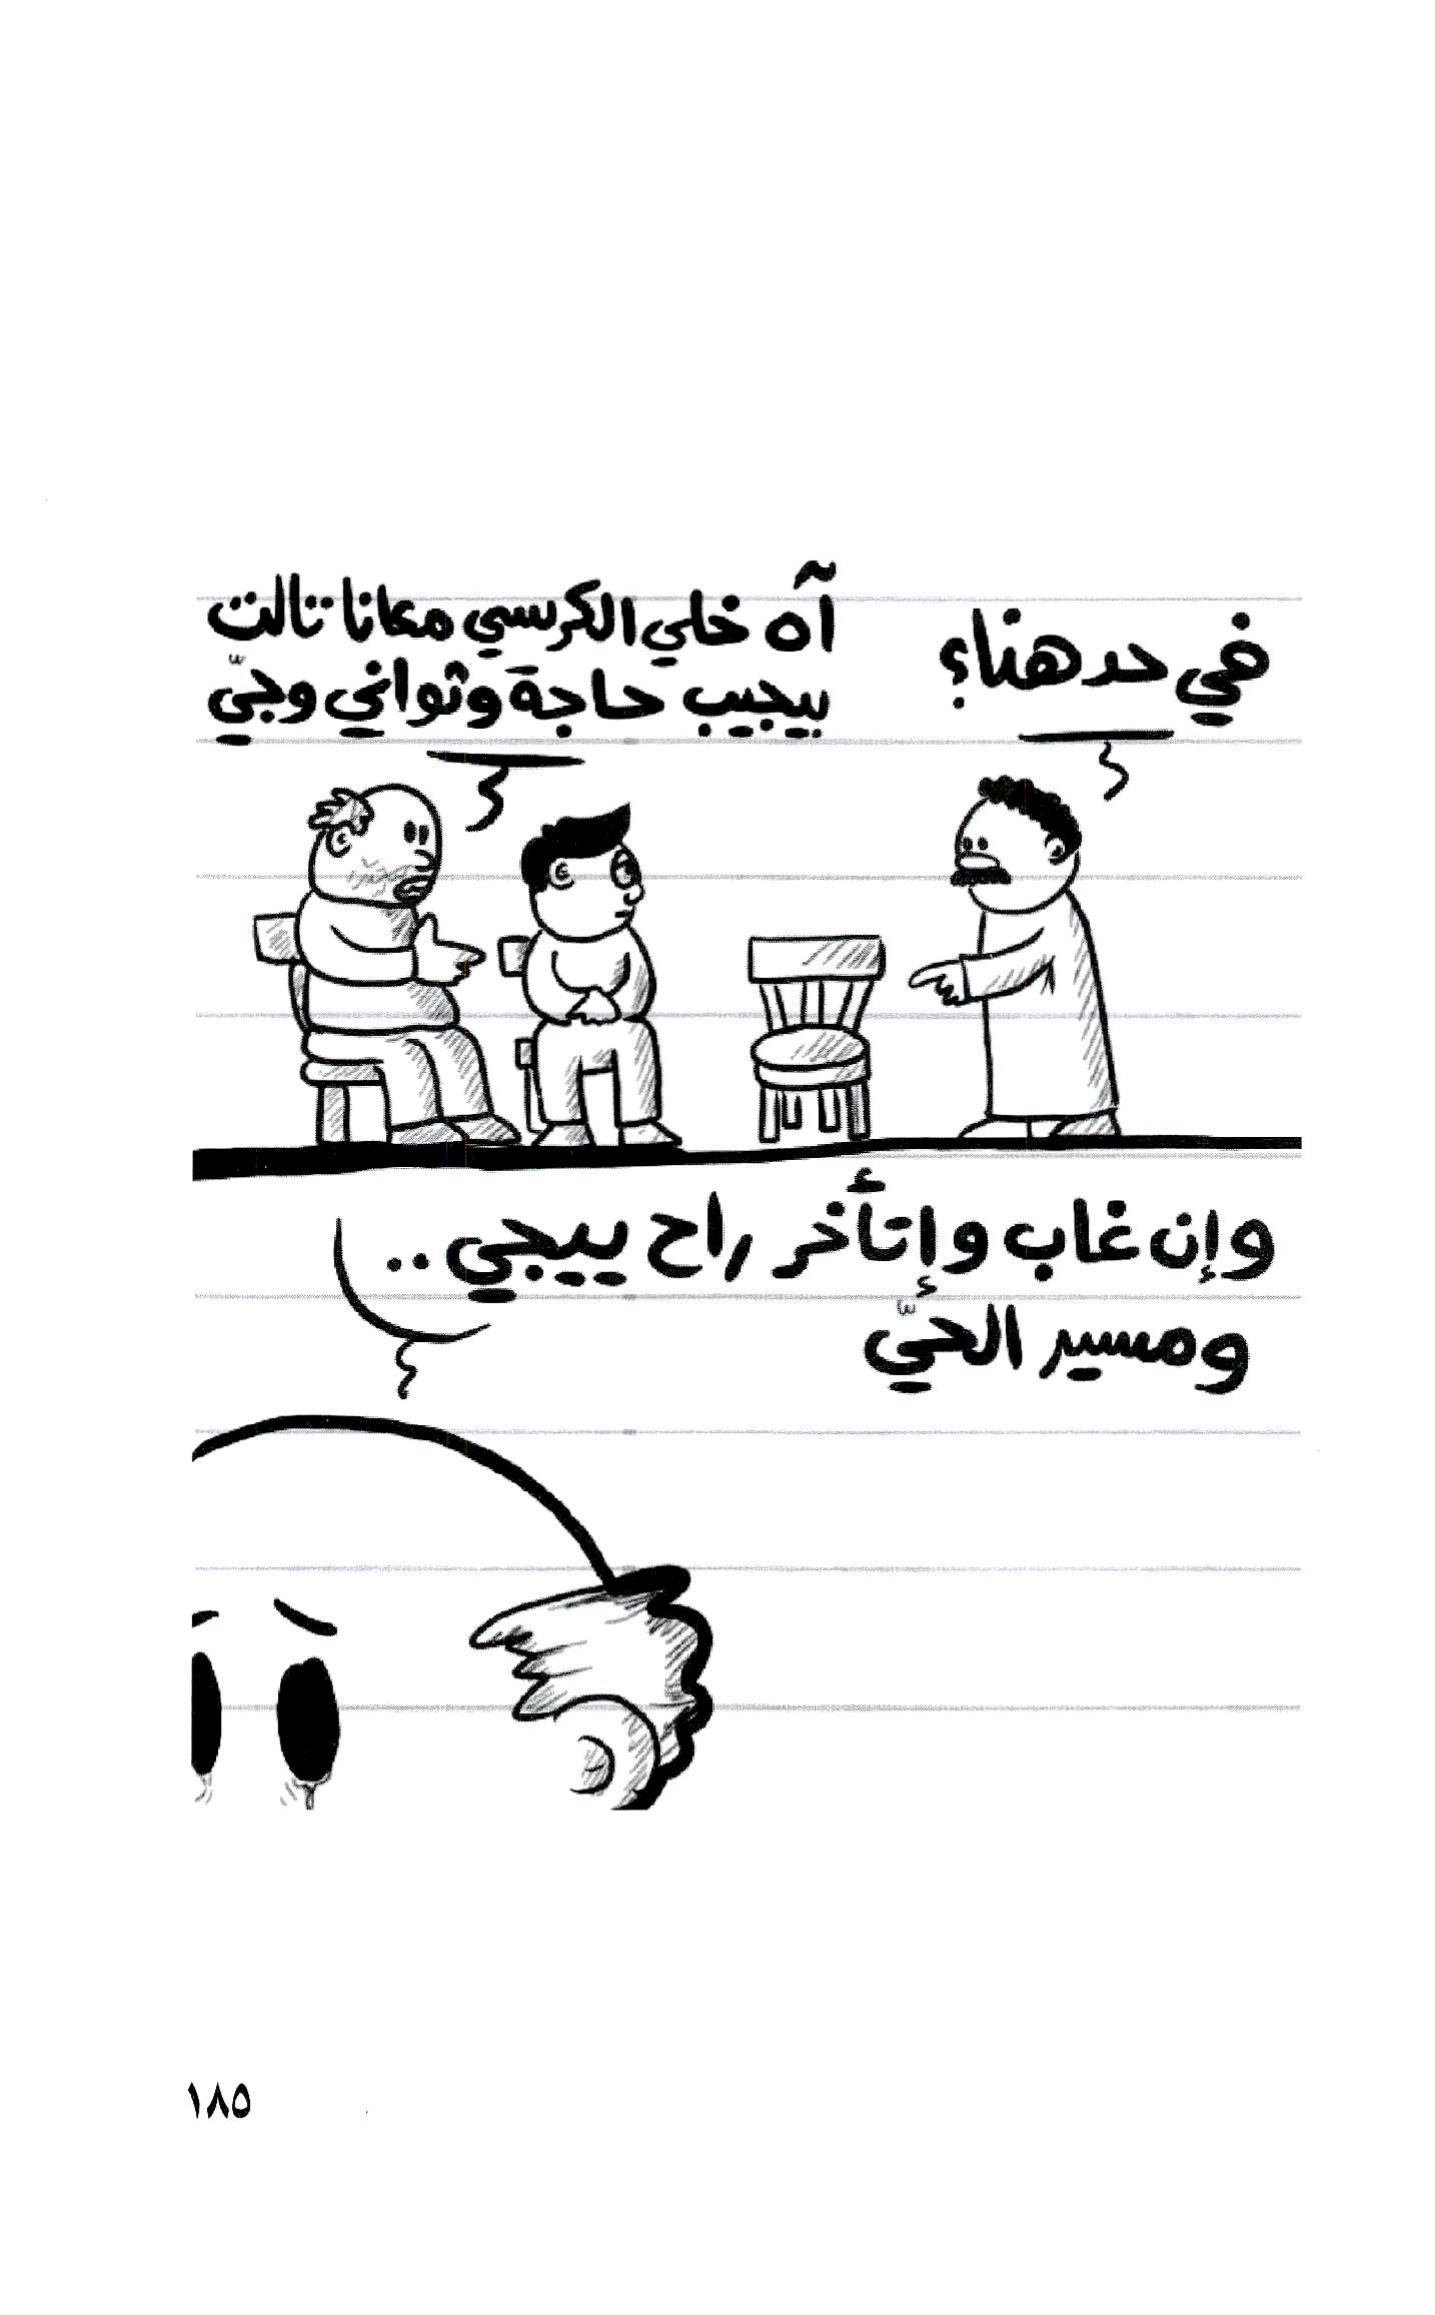 في حد هنا؟
آه خلي الكرسي معانا تالت
بيجيب حاجة وثواني وجيّ
وإن غاب وإتأخر راح ييجي ..
ومسير الحيّ
١٨٥